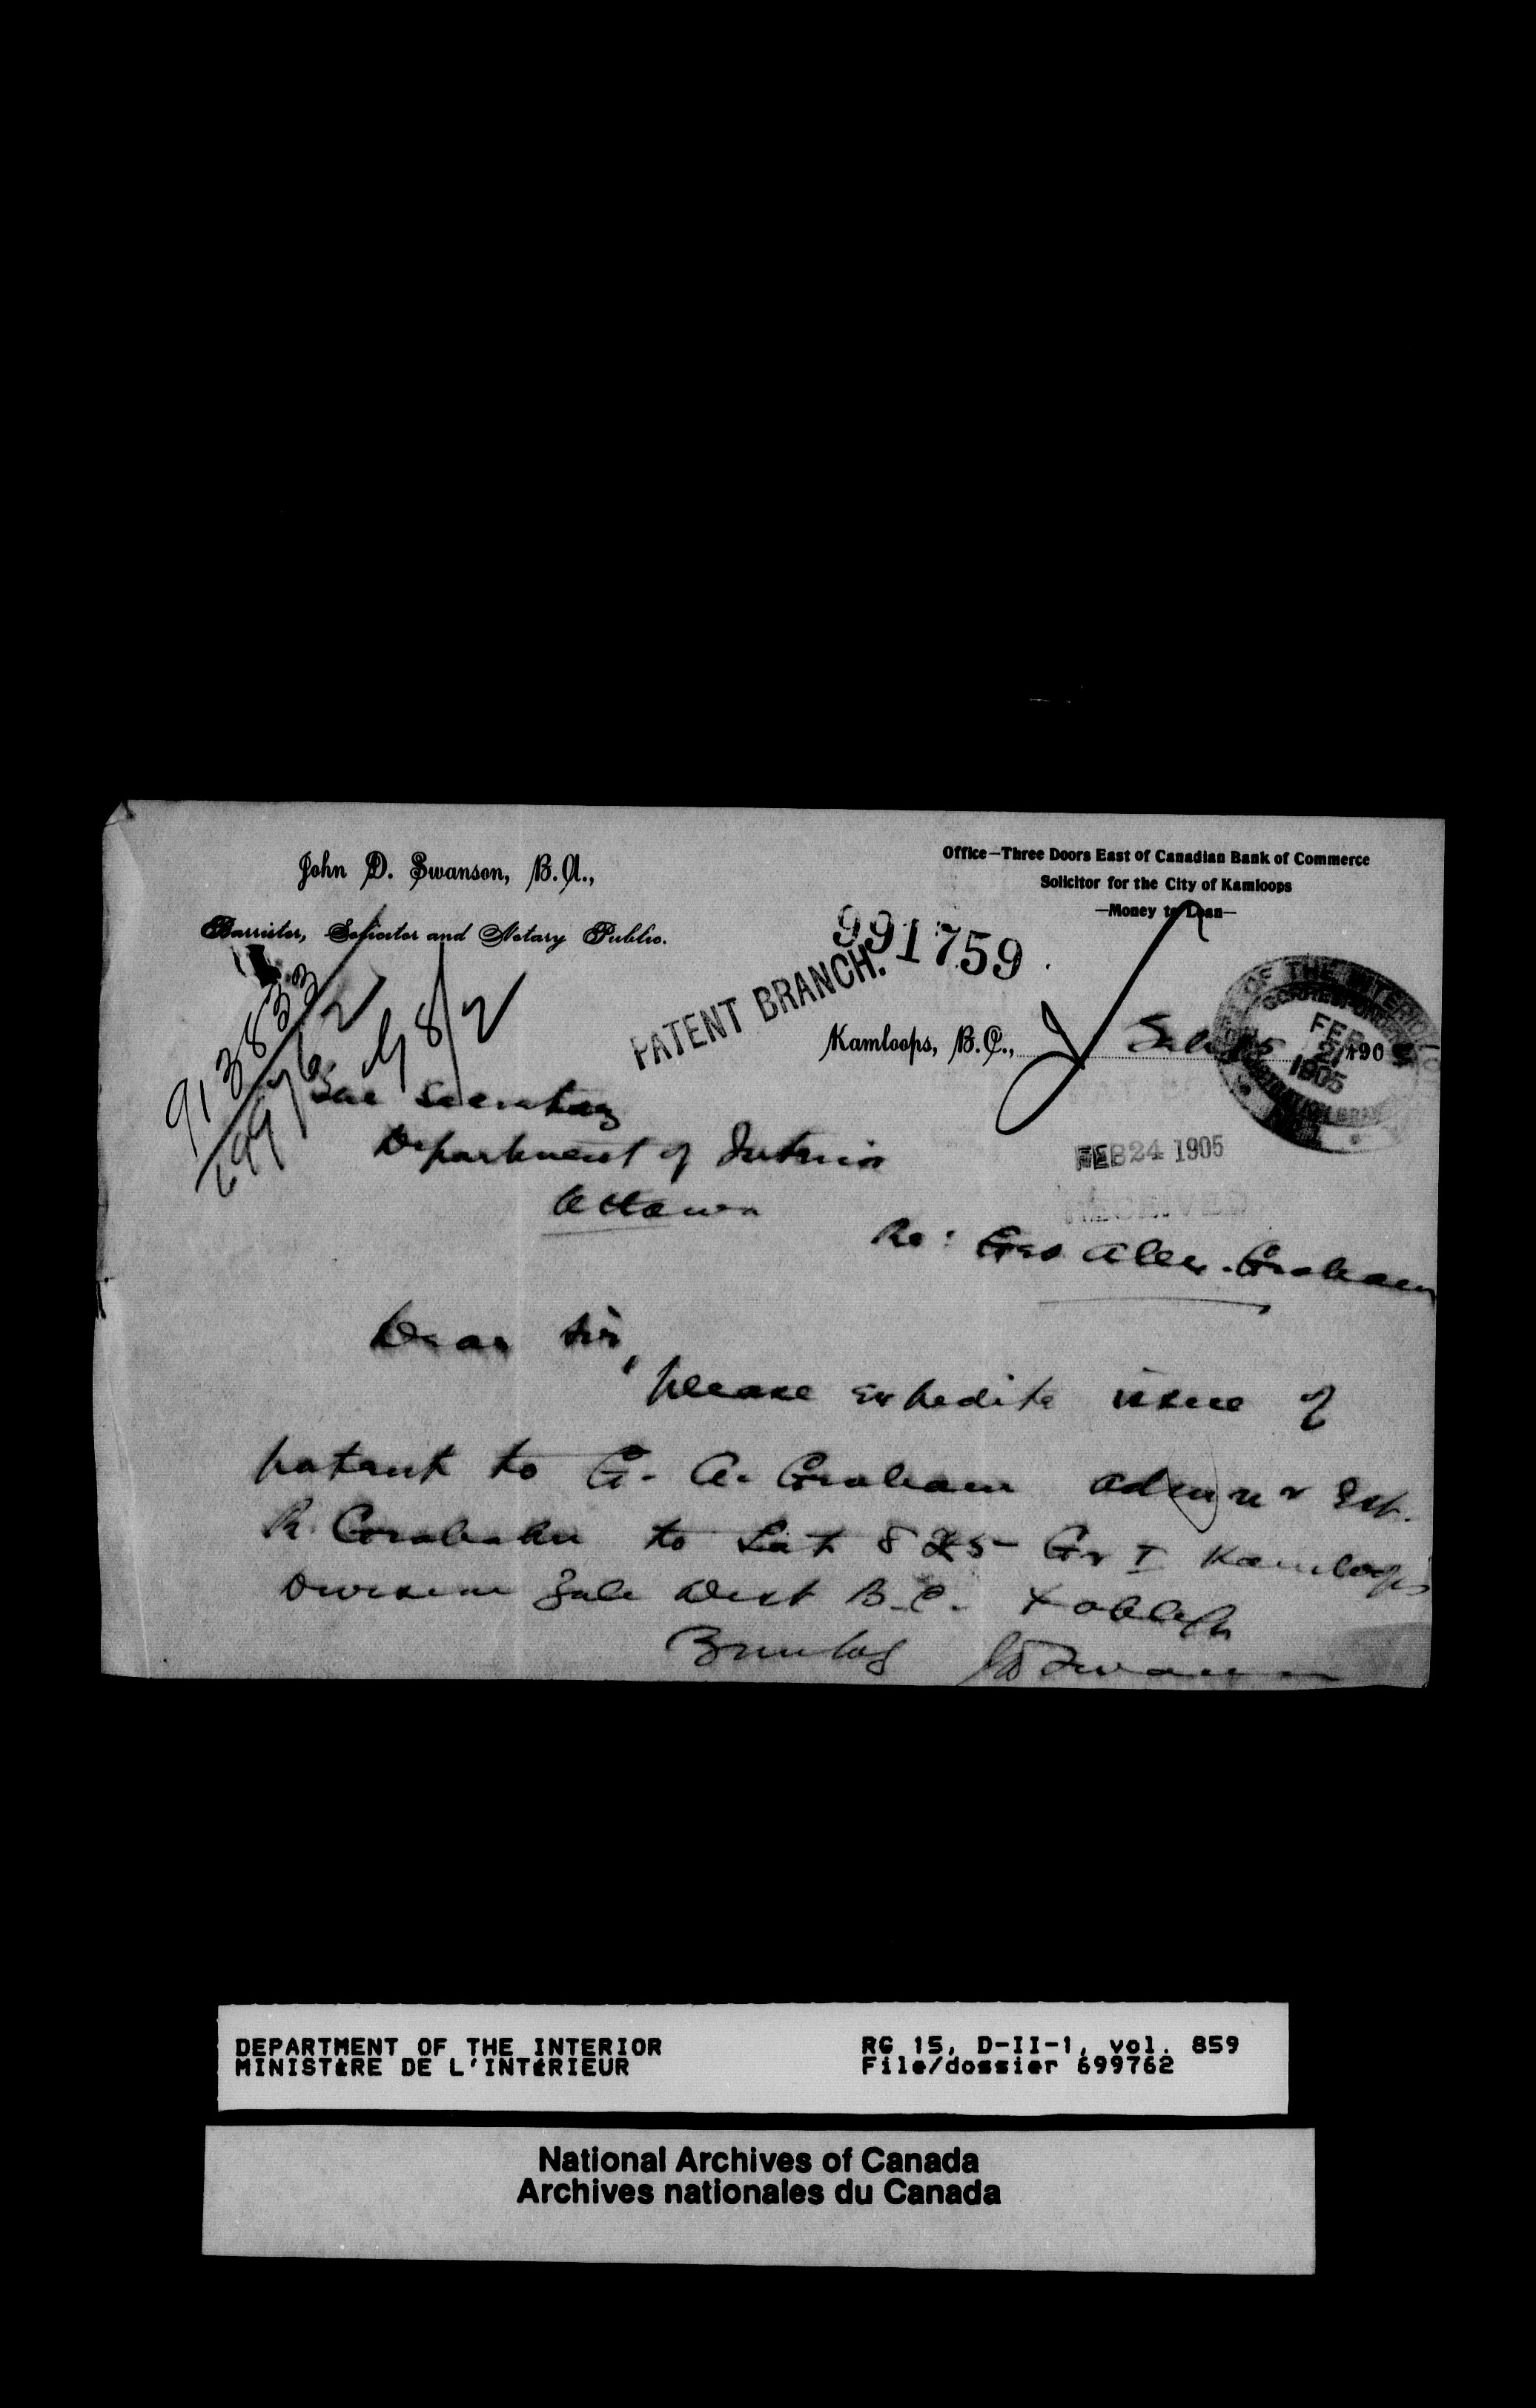 John D. Swanson, B.A.,
Barrister, Solicitor and Notary Public.
Office—Three Doors East of Canadian Bank of Commerce
Solicitor for the City of Kamloops
—Money to Loan—
991759
PATENT BRANCH.
913833
699762
Kamloops, B.C., Feb 15 1905
OF THE INTERIOR
FEB
21
1905
The Secretary
Department of Interior
Ottawa
FEB 24 1905
RECEIVED
Re: Geo Alex. Graham
Dear Sir,
Please expedite issue of
patent to G. A. Graham Admnr Est.
R. Graham to Lot 825 Gr I Kamloops
Division Yale Dist B.C. & oblige
Yours truly JD Swanson
DEPARTMENT OF THE INTERIOR
MINISTÈRE DE L'INTÉRIEUR
RG 15, D-II-1, vol. 859
File/dossier 699762
National Archives of Canada
Archives nationales du Canada